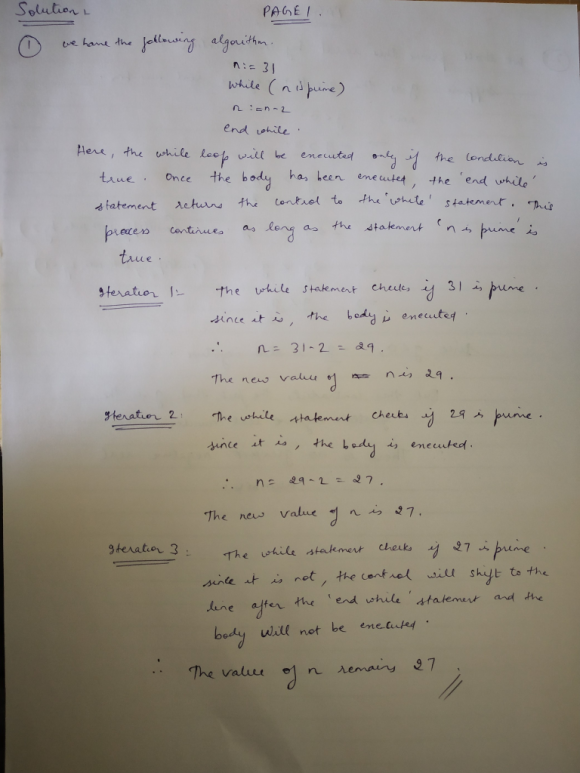 Solution:
PAGE 1.
① we have the following algorithm.
n := 31
while (n is prime)
n := n-2
end while.
Here, the while loop will be executed only if the condition is
true. Once the body has been executed, the 'end while'
statement returns the control to the 'while' statement. This
process continues as long as the statement 'n is prime' is
true.
Iteration 1:- The while statement checks if 31 is prime.
since it is, the body is executed.
∴ n = 31-2 = 29.
The new value of n is 29.
Iteration 2: The while statement checks if 29 is prime.
since it is, the body is executed.
∴ n = 29-2 = 27.
The new value of n is 27.
Iteration 3: The while statement checks if 27 is prime.
since it is not, the control will shift to the
line after the 'end while' statement and the
body will not be executed.
∴ The value of n remains 27.